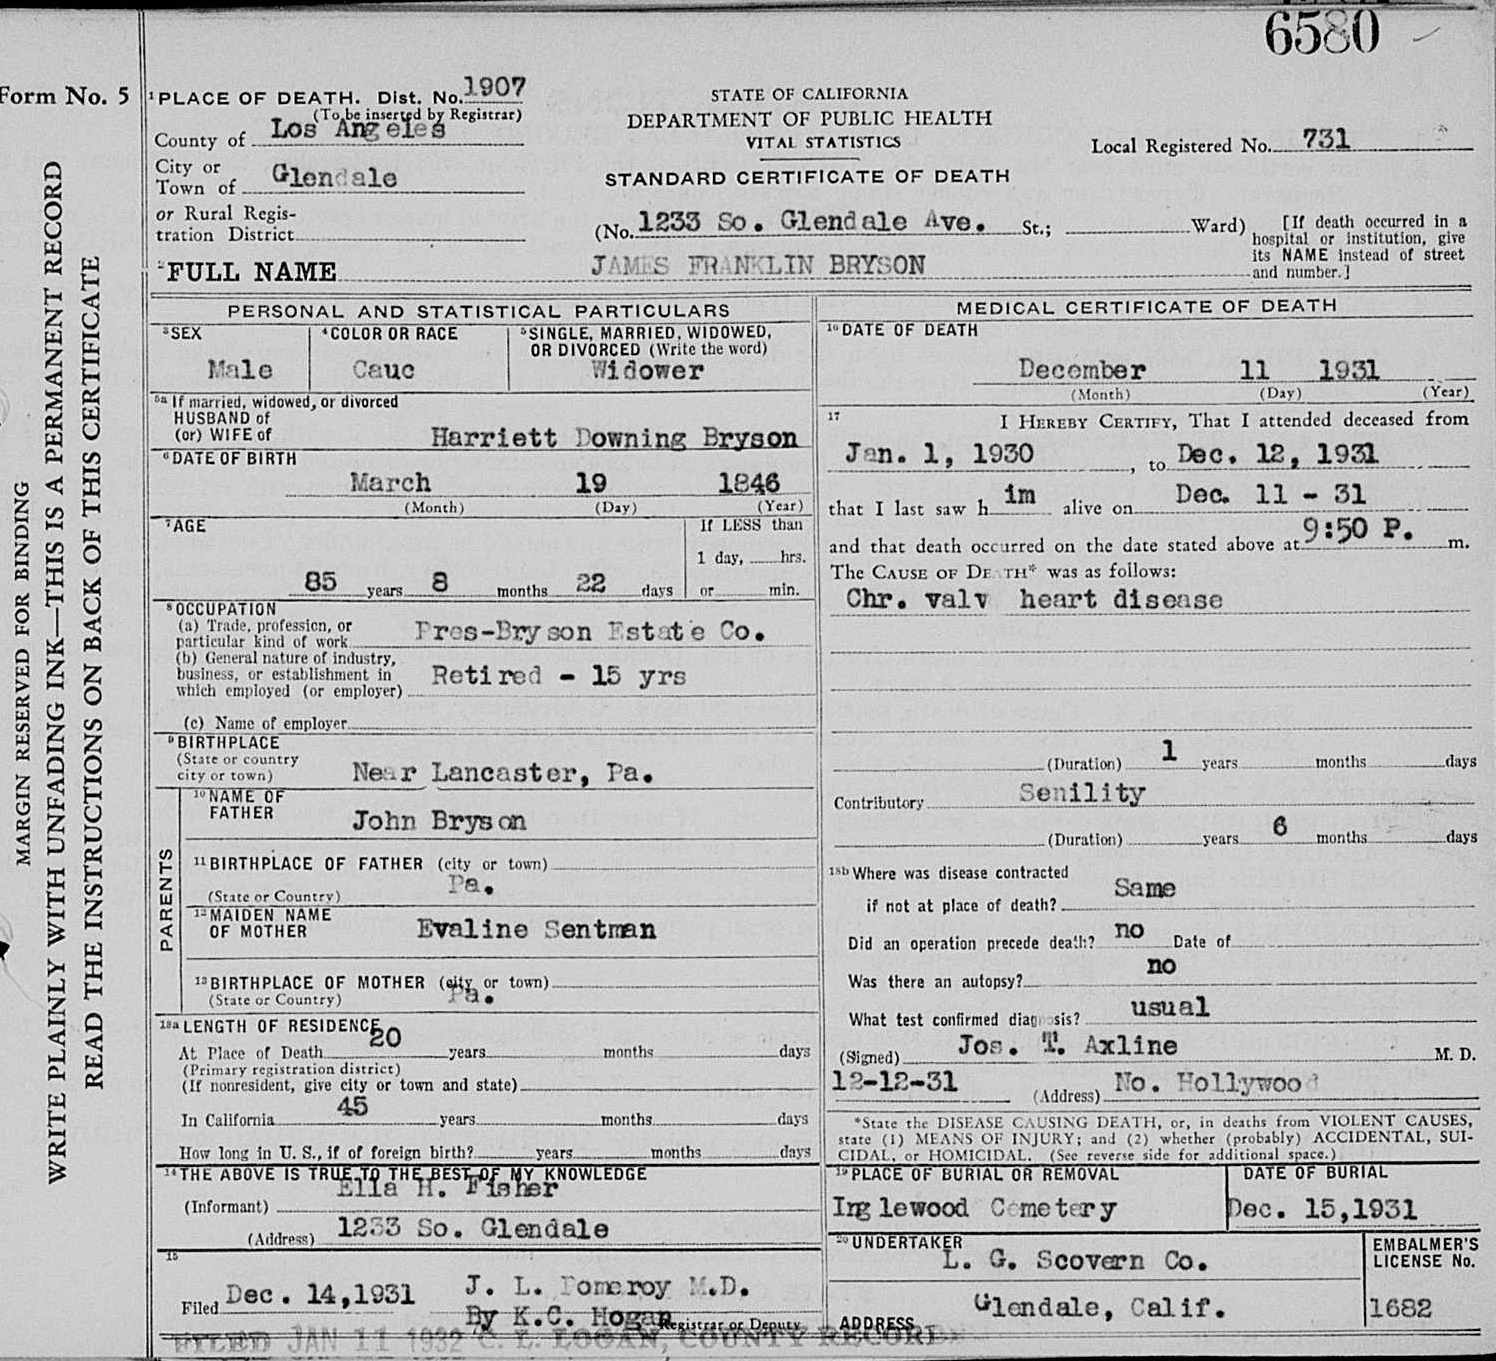 6580
Form No. 5
MARGIN RESERVED FOR BINDING
WRITE PLAINLY WITH UNFADING INK—THIS IS A PERMANENT RECORD
READ THE INSTRUCTIONS ON BACK OF THIS CERTIFICATE
1 PLACE OF DEATH. Dist. No. 1907
(To be inserted by Registrar)
County of Los Angeles
City or
Town of Glendale
or Rural Regis-
tration District
STATE OF CALIFORNIA
DEPARTMENT OF PUBLIC HEALTH
VITAL STATISTICS
STANDARD CERTIFICATE OF DEATH
Local Registered No. 731
(No. 1233 So. Glendale Ave. St.; Ward)
[If death occurred in a
hospital or institution, give
its NAME instead of street
and number.]
2 FULL NAME JAMES FRANKLIN BRYSON
PERSONAL AND STATISTICAL PARTICULARS
3 SEX
Male
4 COLOR OR RACE
Cauc
5 SINGLE, MARRIED, WIDOWED,
OR DIVORCED (Write the word)
Widower
5a If married, widowed, or divorced
HUSBAND of
(or) WIFE of Harriett Downing Bryson
6 DATE OF BIRTH
March 19 1846
(Month) (Day) (Year)
7 AGE
If LESS than
1 day, hrs.
85 years 8 months 22 days or min.
8 OCCUPATION
(a) Trade, profession, or
particular kind of work Pres-Bryson Estate Co.
(b) General nature of industry,
business, or establishment in
which employed (or employer) Retired - 15 yrs
(c) Name of employer
9 BIRTHPLACE
(State or country
city or town) Near Lancaster, Pa.
PARENTS
10 NAME OF
FATHER John Bryson
11 BIRTHPLACE OF FATHER (city or town)
(State or Country) Pa.
12 MAIDEN NAME
OF MOTHER Evaline Sentman
13 BIRTHPLACE OF MOTHER (city or town)
(State or Country) Pa.
18a LENGTH OF RESIDENCE
At Place of Death 20 years months days
(Primary registration district)
(If nonresident, give city or town and state)
In California 45 years months days
How long in U. S., if of foreign birth? years months days
14 THE ABOVE IS TRUE TO THE BEST OF MY KNOWLEDGE
(Informant) Ella H. Fisher
(Address) 1233 So. Glendale
15
Filed Dec. 14,1931 J. L. Pomeroy M.D.
By K.C. Hogan Registrar or Deputy
MEDICAL CERTIFICATE OF DEATH
16 DATE OF DEATH
December 11 1931
(Month) (Day) (Year)
17 I HEREBY CERTIFY, That I attended deceased from
Jan. 1, 1930, to Dec. 12, 1931
that I last saw h im alive on Dec. 11 - 31
and that death occurred on the date stated above at 9:50 P. m.
The CAUSE OF DEATH* was as follows:
Chr. valv heart disease
(Duration) 1 years months days
Contributory Senility
(Duration) years 6 months days
18b Where was disease contracted
if not at place of death? Same
Did an operation precede death? no Date of
Was there an autopsy? no
What test confirmed diagnosis? usual
(Signed) Jos. T. Axline M. D.
12-12-31 (Address) No. Hollywood
*State the DISEASE CAUSING DEATH, or, in deaths from VIOLENT CAUSES,
state (1) MEANS OF INJURY; and (2) whether (probably) ACCIDENTAL, SUI-
CIDAL, or HOMICIDAL. (See reverse side for additional space.)
19 PLACE OF BURIAL OR REMOVAL
Inglewood Cemetery
DATE OF BURIAL
Dec. 15,1931
20 UNDERTAKER
L. G. Scovern Co.
ADDRESS Glendale, Calif.
EMBALMER'S
LICENSE No.
1682
FILED JAN 11 1932 C. L. LOGAN, COUNTY RECORDER